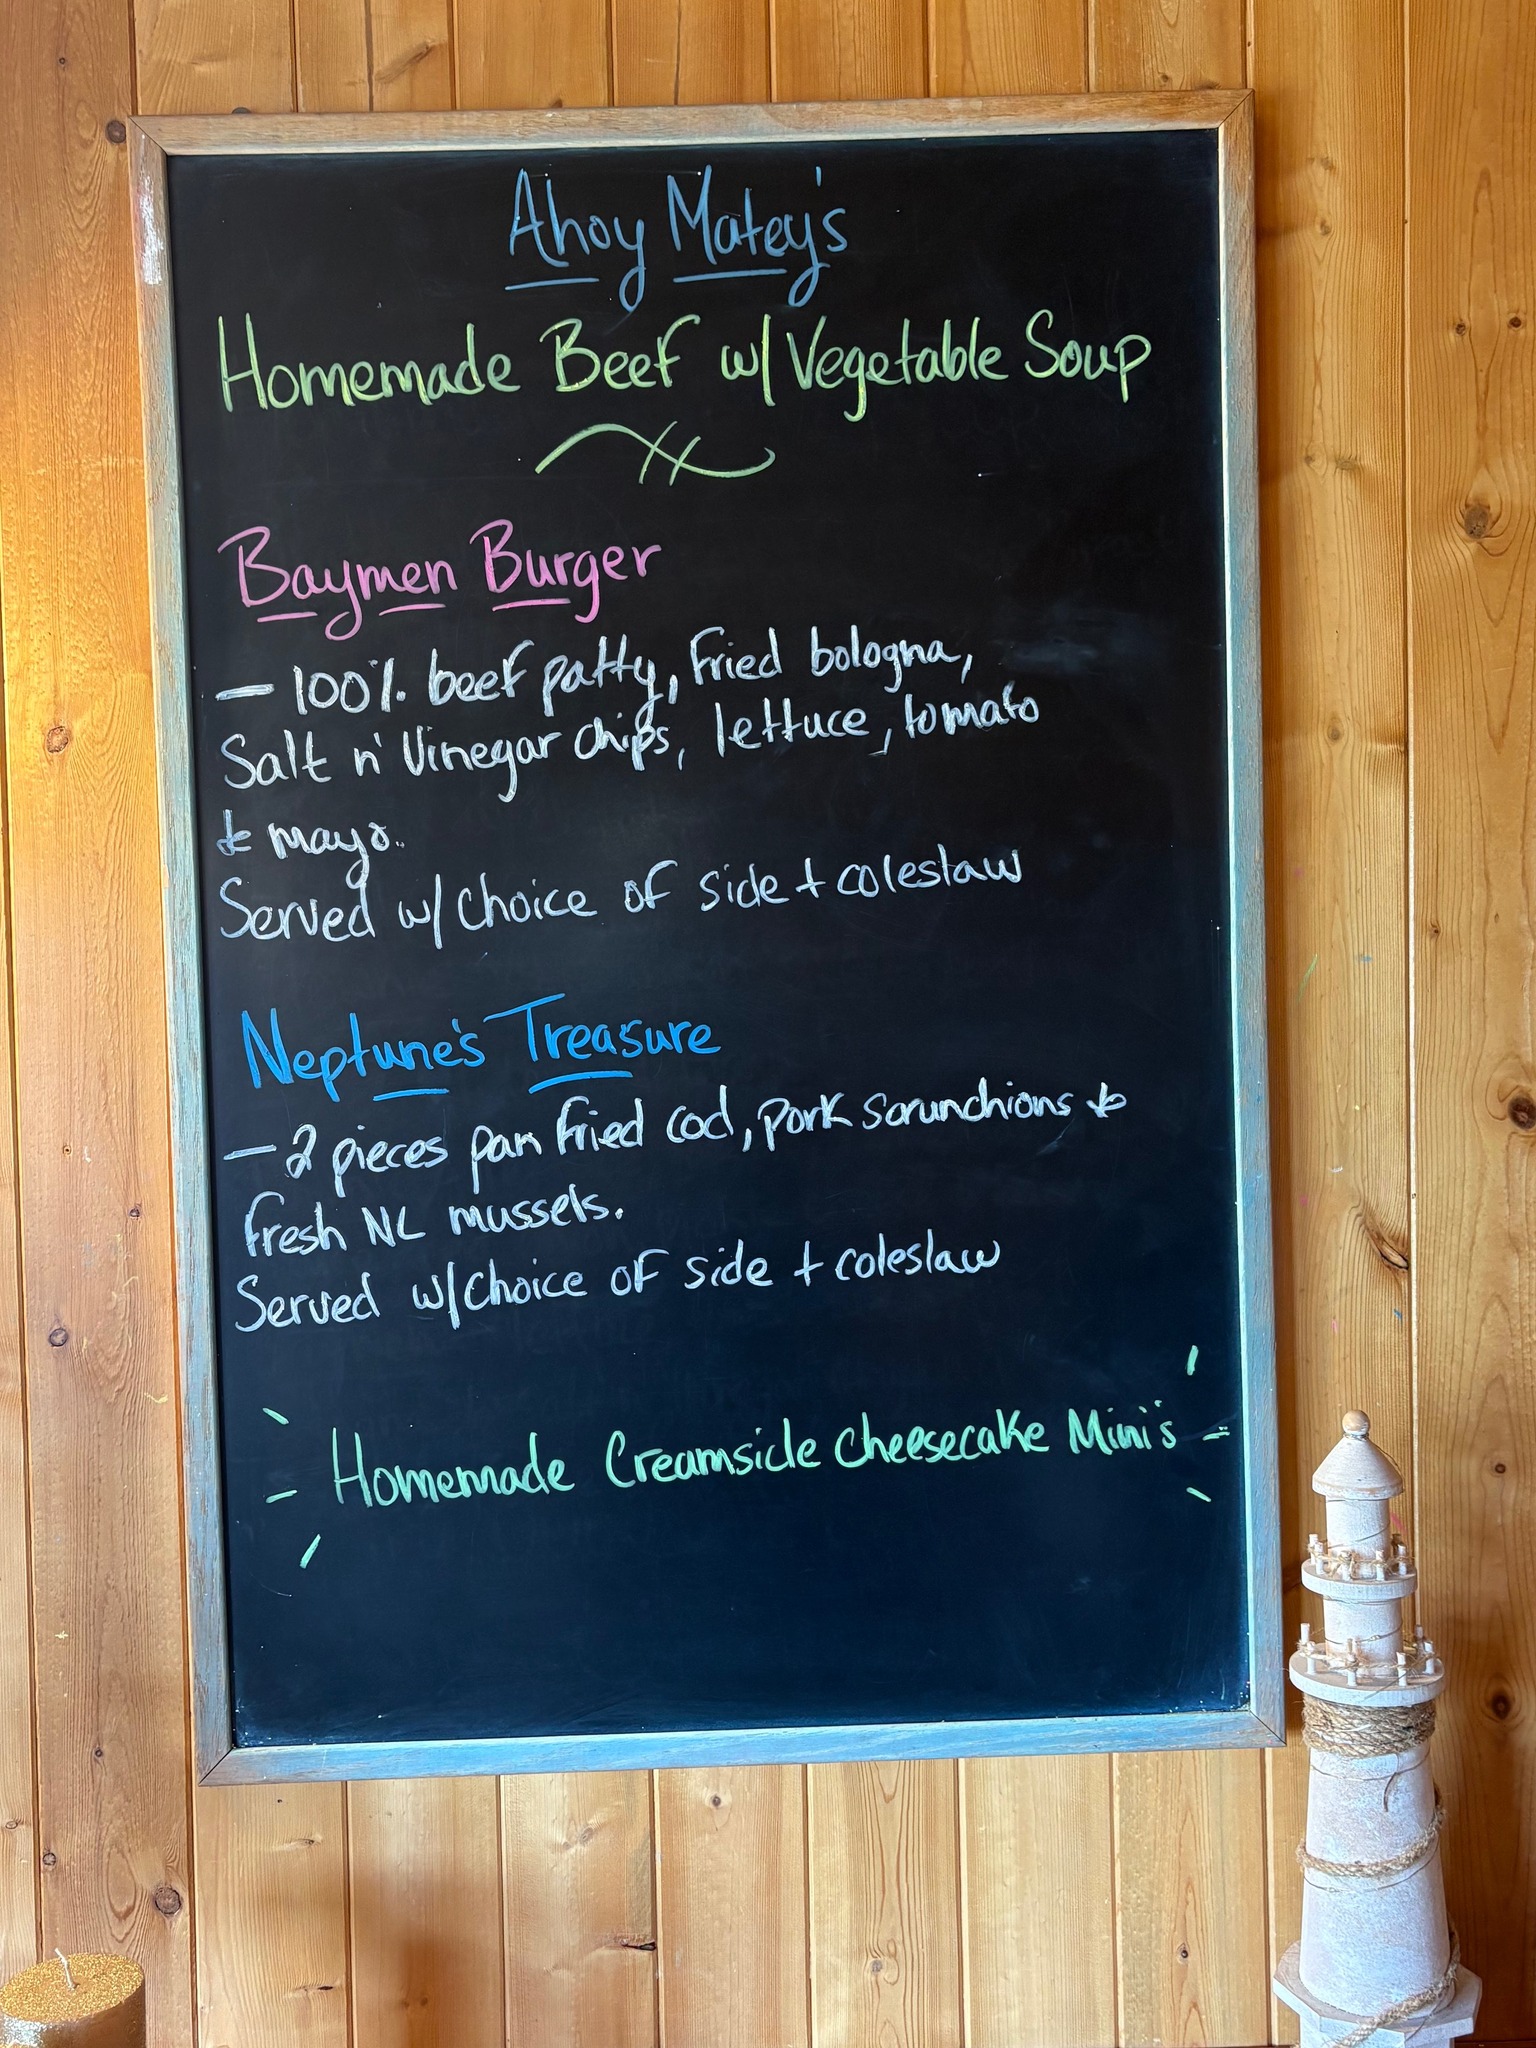 Ahoy Matey's
Homemade Beef w/ Vegetable Soup
Baymen Burger
— 100% beef patty, fried bologna,
Salt n' Vinegar chips, lettuce, tomato
& mayo.
Served w/ choice of side + coleslaw
Neptune's Treasure
— 2 pieces pan fried cod, pork scrunchions &
fresh NL mussels.
Served w/ choice of side + coleslaw
Homemade Creamsicle Cheesecake Mini's